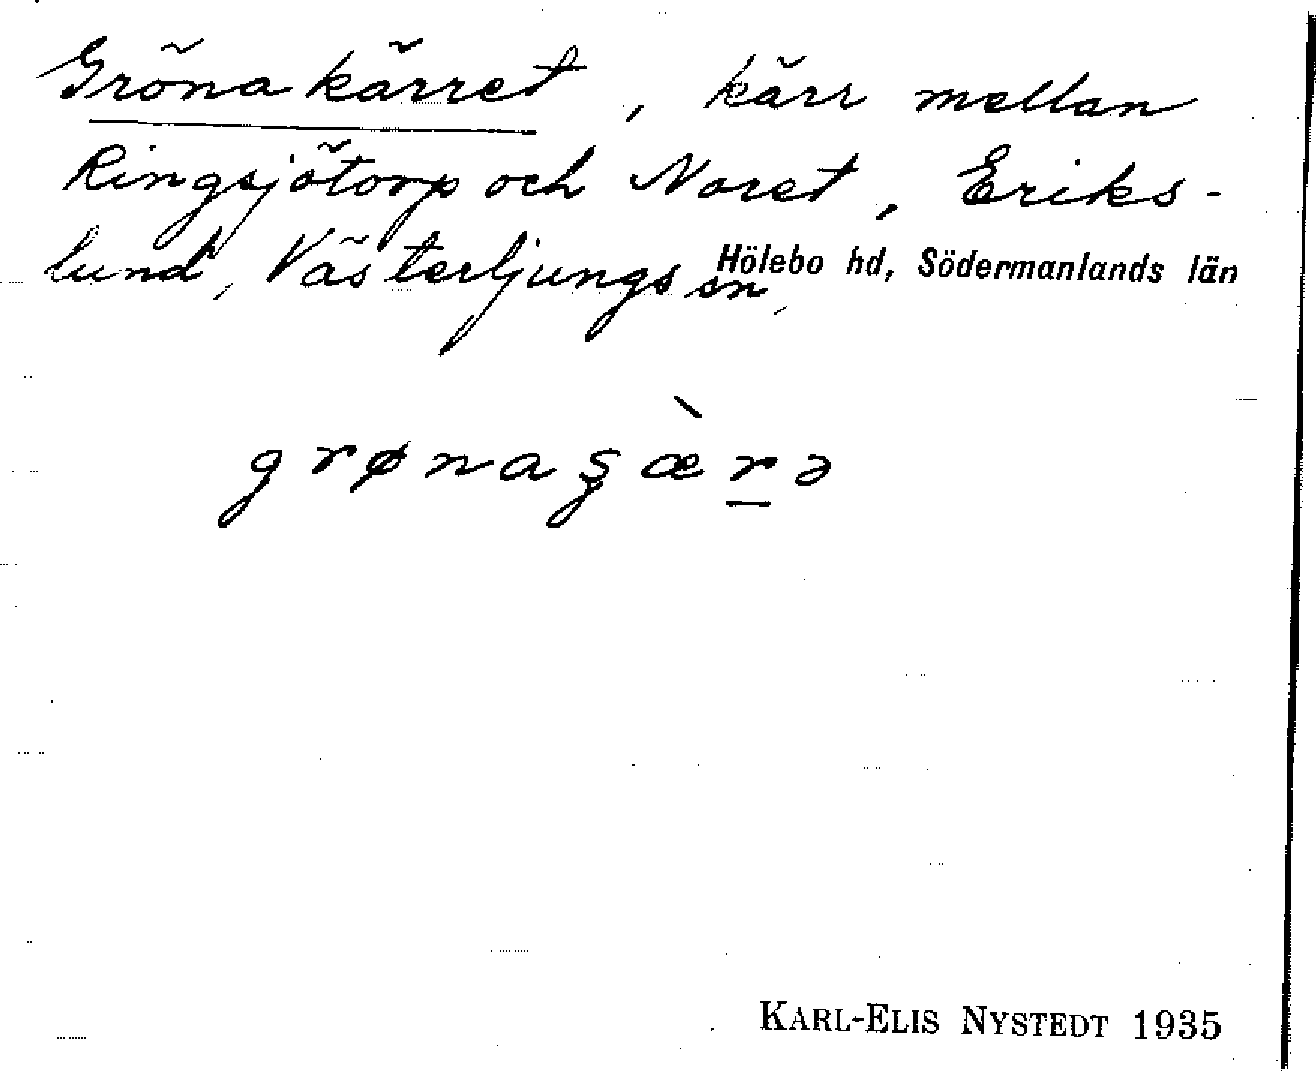 Gröna kärret, kärr mellan
Ringsjötorp och Noret, Eriks-
lund, Västerljungs sn, Hölebo hd, Södermanlands län
grønaʂæ̀r̲ə
KARL-ELIS NYSTEDT 1935